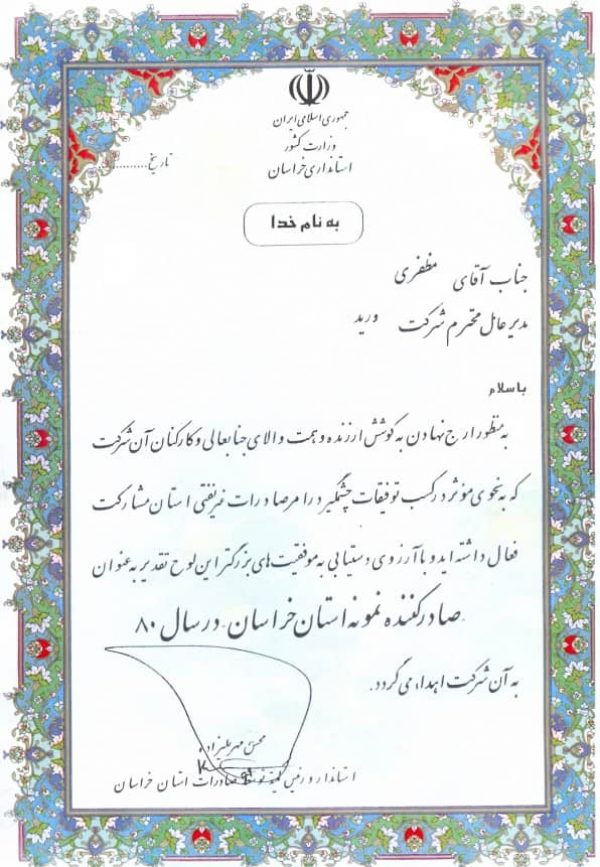 جمهوری اسلامی ایران
وزارت کشور
استانداری خراسان
تاریخ............
به نام خدا
جناب آقای مظفری
مدیر عامل محترم شرکت ورید
باسلام
به منظور ارج نهادن به کوشش ارزنده و همت والای جنابعالی و کارکنان آن شرکت
که به نحوی مؤثر در کسب توفیقات چشمگیر در امر صادرات غیر نفتی استان مشارکت
فعال داشته اید و با آرزوی دستیابی به موفقیت های بزرگتر این لوح تقدیر به عنوان
صادرکننده نمونه استان خراسان در سال ۸۰
به آن شرکت اهداء می گردد.
محسن مهر علیزاده
استاندار و رئیس کمیته توسعه صادرات استان خراسان